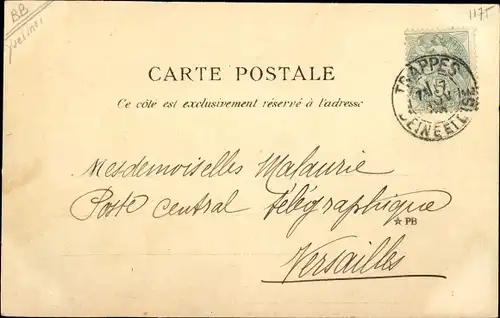 BB
Yvelines
1175
TRAPPES
SEINE ET OISE
CARTE POSTALE
Ce côté est exclusivement réservé à l'adresse
Mesdemoiselles Malaurie
Poste central Télégraphique
☆ PB
Versailles